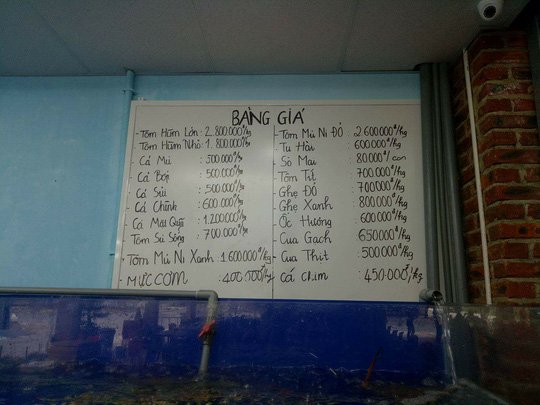 BẢNG GIÁ
- Tôm Hùm Lớn: 2.800.000đ/kg
Tôm Hùm Nhỏ: 1.800.000đ/kg
- Cá Mú : 500.000đ/kg
- Cá Bớp : 500.000đ/kg
- Cá Sủ : 500.000đ/kg
- Cá Chình : 600.000đ/kg
- Cá Mặt Quỷ : 1.200.000đ/kg
Tôm Sú Sống : 700.000đ/kg
- Tôm Mũ Ni Xanh : 1.600.000đ/kg
- MỰC CƠM : 400.000đ/kg
- Tôm Mũ Ni Đỏ : 2.600.000đ/kg
Tu Hài : 600.000đ/kg
- Sò Mai : 80.000đ/con
Tôm Tít : 700.000đ/kg
- Ghẹ Đỏ : 700.000đ/kg
- Ghẹ Xanh : 800.000đ/kg
- Ốc Hương : 600.000đ/kg
- Cua Gạch : 650.000đ/kg
- Cua Thịt : 500.000đ/kg
- Cá Chim : 450.000đ/kg